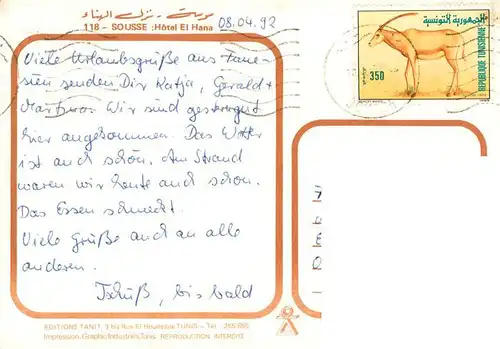 سوسة - نزل الهناء
118 - SOUSSE : Hôtel El Hana
08.04.92
الجمهورية التونسية
REPUBLIQUE TUNISIENNE
350
Viele Urlaubsgrüße aus Tune-
sien senden Dir Katja, Gerald +
Martina. Wir sind gestern gut
hier angekommen. Das Wetter
ist auch schön. Am Strand
waren wir heute auch schon.
Das Essen schmeckt.
Viele Grüße auch an alle
anderen.
Tschüß, bis bald
EDITIONS TANIT, 3 bis Rue El Houdaybia TUNIS - Tél
Impression Graphic Industriels Tunis REPRODUCTION INTERDITE